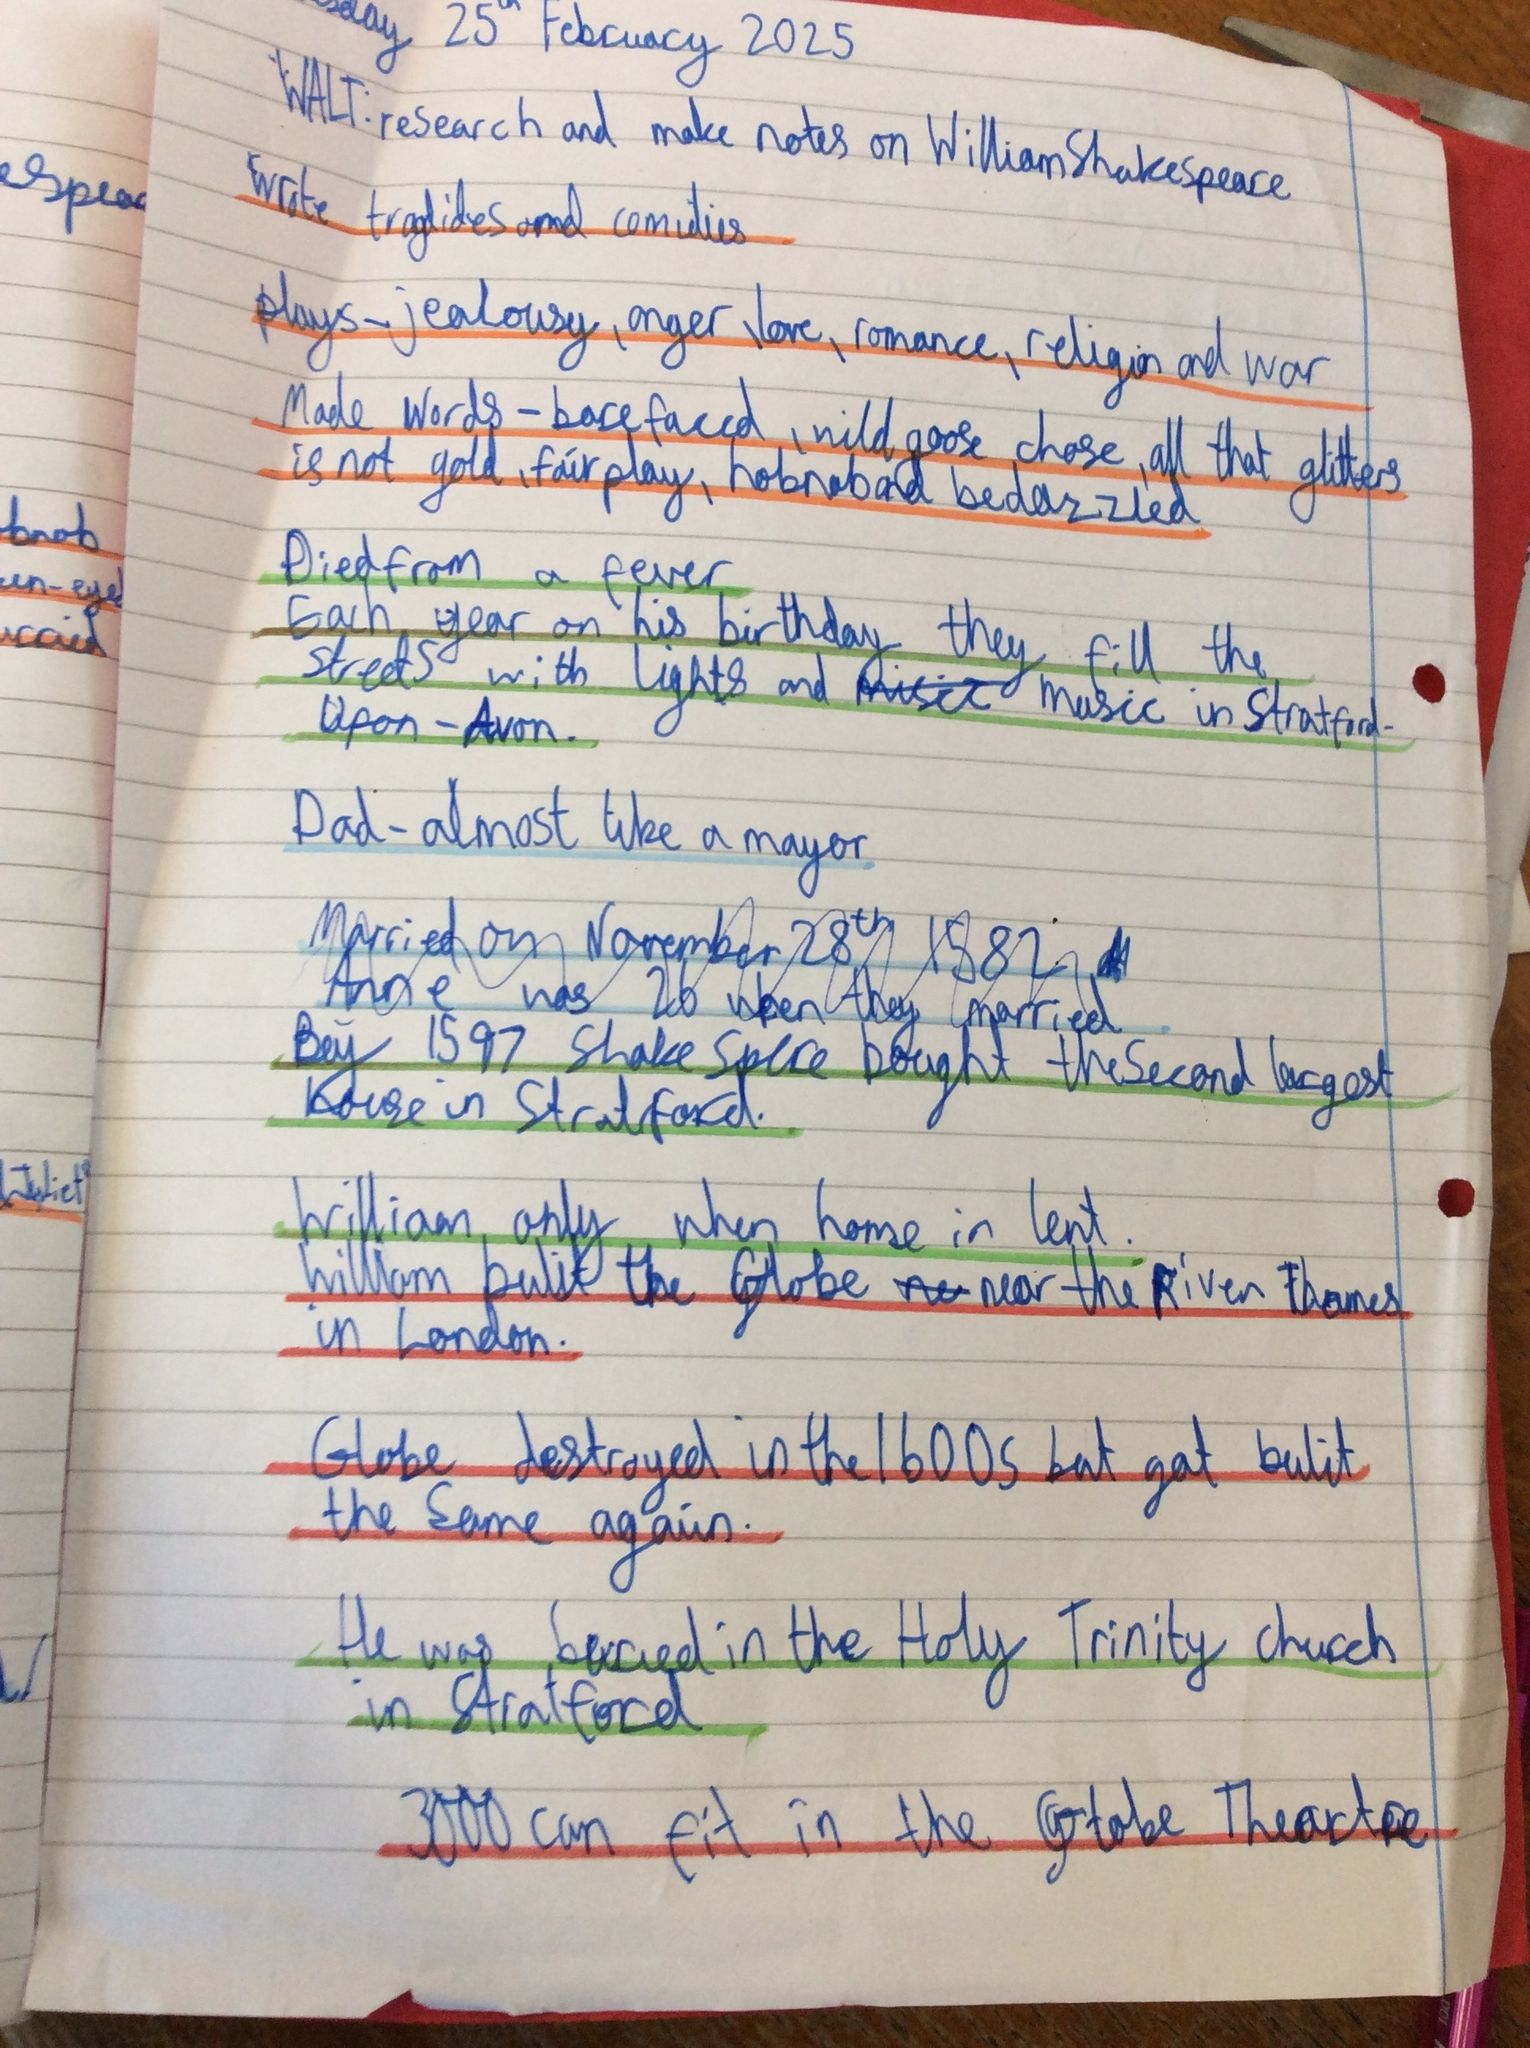 25th February 2025
WALT: research and make notes on William Shakespeare
Wrote tragidies and comidies
plays - jealousy, anger, love, romance, religion and war
Made words - barefaced, wild goose chase, all that glitters
is not gold, fairplay, hobnob and bedazzled
Died from a fever
Each year on his birthday they fill the
streets with lights and music music in Stratford-
Upon-Avon.
Dad - almost like a mayor
Married on November 28th 1582
Anne was 26 when they married
By 1597 Shakespere bought the second largest
house in Stratford.
William only when home in lent.
William bulit the Globe near the River Thames
in London.
Globe destroyed in the 1600s but got bulit
the same again.
He was burried in the Holy Trinity church
in Stratford
3000 can fit in the Globe Theartre
espear
bnob
en-eyed
arried
Juliet"